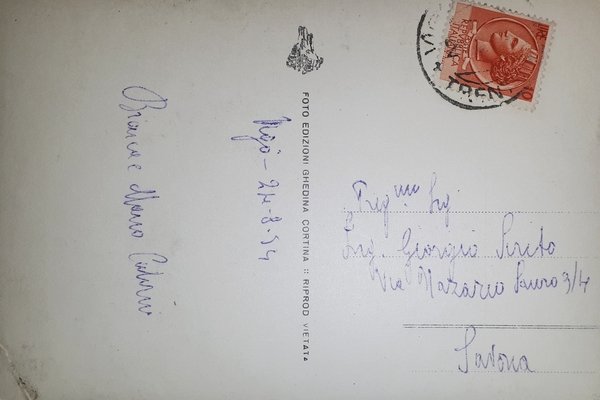 Bianca e Mario
24-8-54
FOTO EDIZIONI GHEDINA CORTINA :: RIPROD VIETATA
REPUBBLICA
ITALIANA
TREN
Preg mo Sig
Ing. Giorgio
Via Nazario Sauro 3/4
Savona